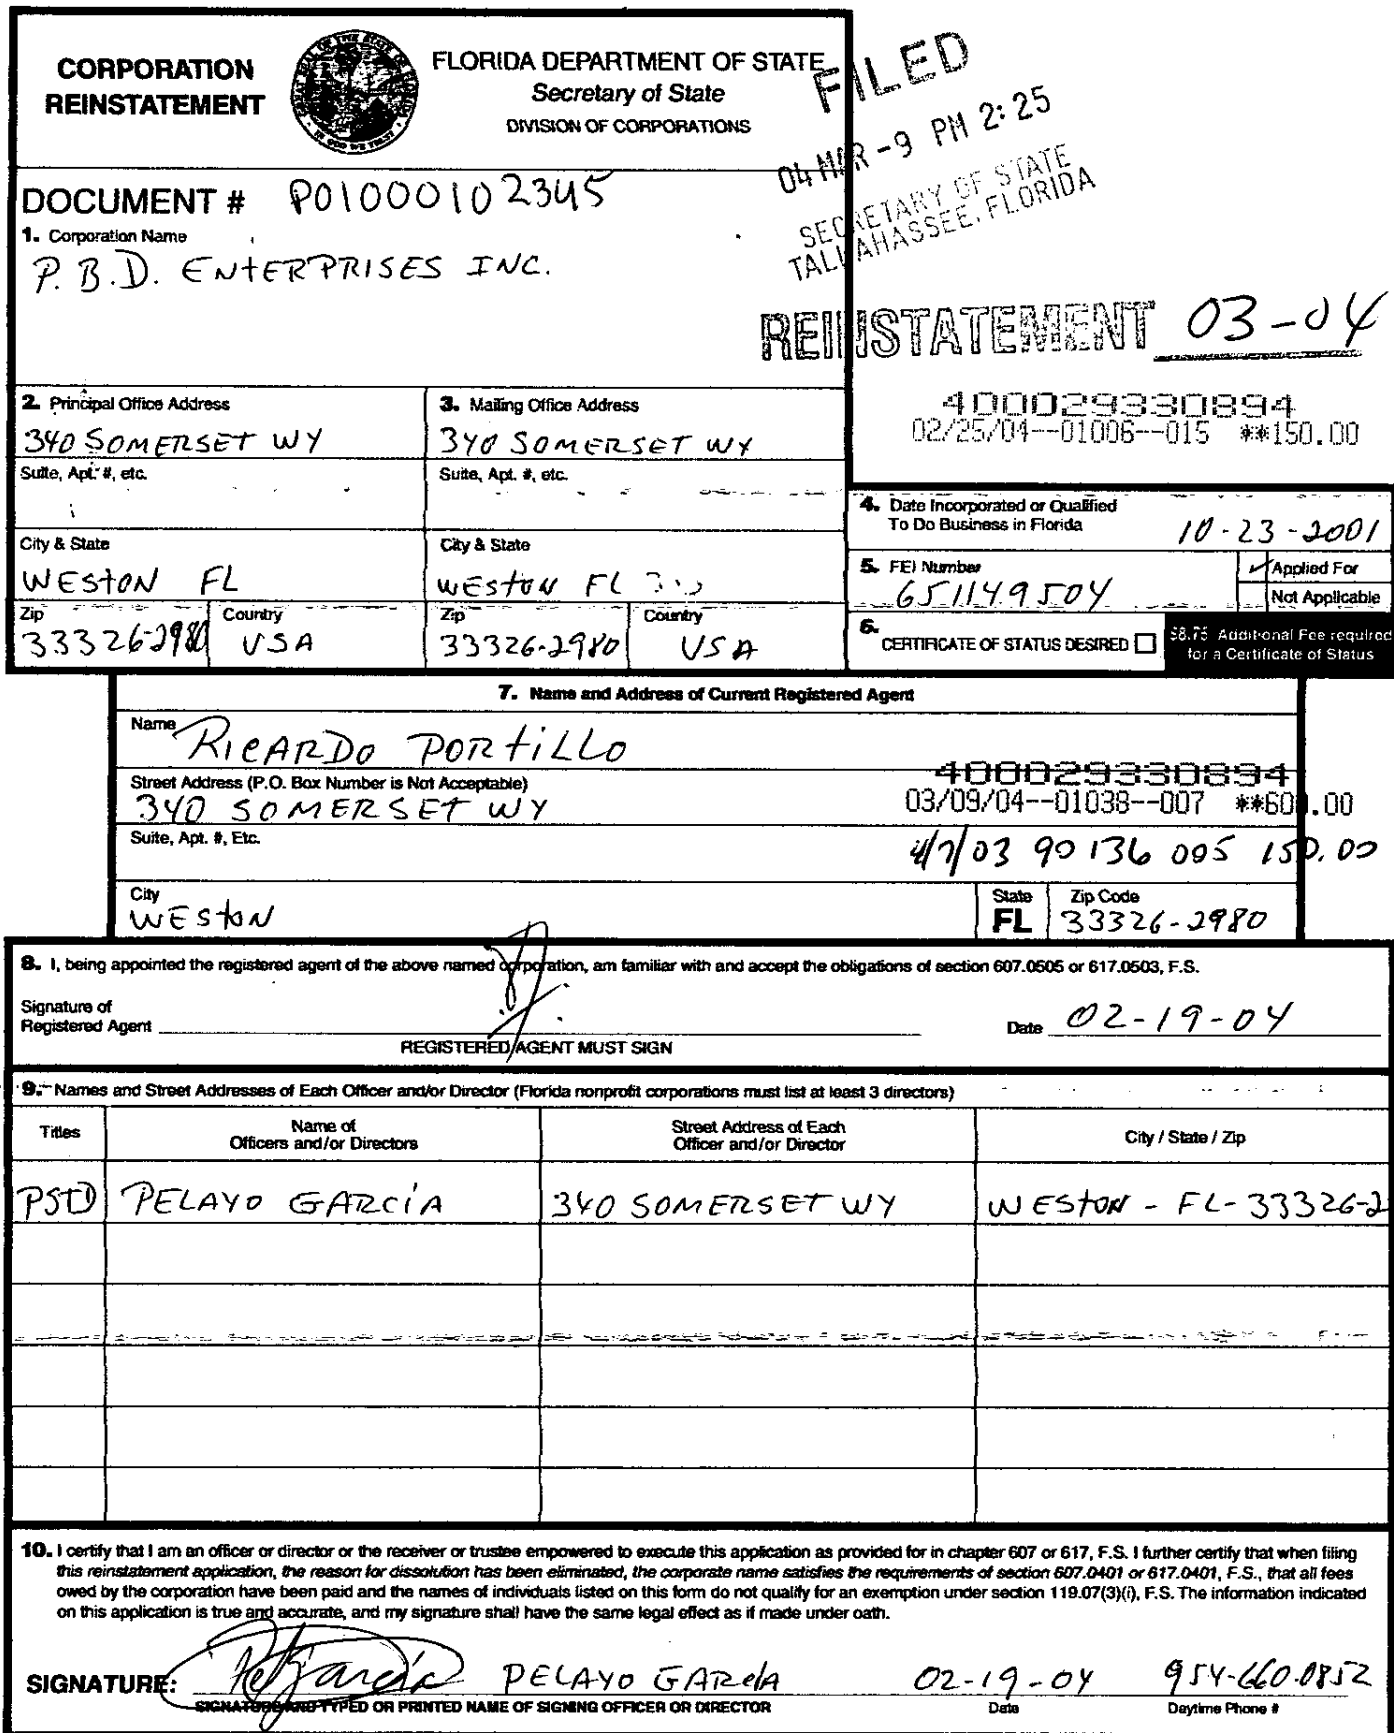 CORPORATION
REINSTATEMENT
FLORIDA DEPARTMENT OF STATE
Secretary of State
DIVISION OF CORPORATIONS
FILED
04 MAR -9 PM 2:25
SECRETARY OF STATE
TALLAHASSEE, FLORIDA
DOCUMENT # P01000102345
1. Corporation Name
P.B.D. ENTERPRISES INC.
REINSTATEMENT 03-04
400029330894
02/25/04--01006--015 **150.00
2. Principal Office Address
340 SOMERSET WY
Suite, Apt. #, etc.
City & State
WESTON FL
Zip Country
33326-2980 USA
3. Mailing Office Address
340 SOMERSET WY
Suite, Apt. #, etc.
City & State
WESTON FL
Zip Country
33326-2980 USA
4. Date Incorporated or Qualified
To Do Business in Florida
10-23-2001
5. FEI Number
651149504
Applied For
Not Applicable
6. CERTIFICATE OF STATUS DESIRED
$8.75 Additional Fee required
for a Certificate of Status
7. Name and Address of Current Registered Agent
Name
RICARDO PORTILLO
Street Address (P.O. Box Number is Not Acceptable)
340 SOMERSET WY
400029330894
03/09/04--01038--007 **600.00
Suite, Apt. #, Etc.
4/7/03 90136 005 150.00
City
WESTON
State
FL
Zip Code
33326-2980
8. I, being appointed the registered agent of the above named corporation, am familiar with and accept the obligations of section 607.0505 or 617.0503, F.S.
Signature of
Registered Agent
Date 02-19-04
REGISTERED AGENT MUST SIGN
9. Names and Street Addresses of Each Officer and/or Director (Florida nonprofit corporations must list at least 3 directors)
Titles
Name of
Officers and/or Directors
Street Address of Each
Officer and/or Director
City / State / Zip
PSTD PELAYO GARCÍA 340 SOMERSET WY WESTON - FL-33326-2
10. I certify that I am an officer or director or the receiver or trustee empowered to execute this application as provided for in chapter 607 or 617, F.S. I further certify that when filing
this reinstatement application, the reason for dissolution has been eliminated, the corporate name satisfies the requirements of section 607.0401 or 617.0401, F.S., that all fees
owed by the corporation have been paid and the names of individuals listed on this form do not qualify for an exemption under section 119.07(3)(i), F.S. The information indicated
on this application is true and accurate, and my signature shall have the same legal effect as if made under oath.
SIGNATURE: PELAYO GARCIA 02-19-04 954-660-0852
SIGNATURE AND TYPED OR PRINTED NAME OF SIGNING OFFICER OR DIRECTOR
Date
Daytime Phone #